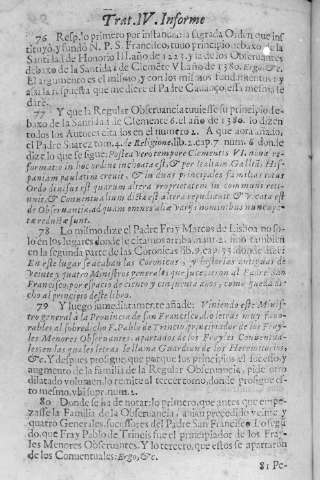 Trat. IV. Informe
76 Resp. lo primero por instancia: la sagrada Orden que ins-
tituyò, y fundò N. P. S. Francisco, tuuo principio debaxo de la
Santidad de Honorio III. año de 1223. y la de los Obseruantes
debaxo de la Santidad de Clemẽte VI. año de 1380. Ergo, &c.
El argumento es el mismo, y con los mismos fundamentos: y
assi la respuesta que me diere el Padre Cauanço, essa mesma le
dirè.
77 Y que la Regular Obseruancia tuuiesse su principio de-
baxo de la Santidad de Clemente 6. el año de 1380. lo dizen
todos los Autores citados en el numero 2. A que aora añado,
el Padre Suarez tom. 4. de Religione, lib. 2. cap. 7. num. 6. donde
dize lo que se sigue: Postea verò tempore Clementis VI. nova re-
formatio in hoc ordine inchoata est, & per Italiam, Galliã, His-
paniam paulatim crevit, & in duas principales familias totus
Ordo divisus est quarum altera proprietatem in communi reti-
nuit, & Conuentualium dicta est altera repudiauit & vocata est
de Obseruantia, ad quam omnes aliæ varijs nominibus nuncupa-
tæ reductæ sunt.
78 Lo mismo dize el Padre Fray Marcos de Lisboa, no so-
lo en los lugares donde le citamos arriba, num. 2. sino tambien
en la segunda parte de las Coronicas, lib. 9. cap. 33. donde dize:
En este lugar se acaban las Coronicas, y historias antiguas de
veinte y quatro Ministros generales que sucedieron al Padre San
Francisco, por espacio de ciento y cinquenta años, como queda di-
cho al principio deste libro.
79 Y luego inmediatamente añade: Viniendo este Minis-
tro general a la Prouincia de san Francisco, dio letras muy fauo-
rables al sobredicho F. Pablo de Trincis, principiador de los Fray-
les Menores Obseruantes, apartados de los Frayles Conuentua-
les; en las quales letras le llama Guardian de los Eremitorios,
&c. Y despues prosigue, que porque los principios, el sucesso, y
augmento de la familia de la Regular Obseruancia, pide otro
dilatado volumen, lo remite al tercer tomo, donde prosigue es-
to mesmo, vbi supr. num. 2.
80 Donde se ha de notar: lo primero, que antes que empe-
zasse la Familia de la Obseruancia, auian precedido veinte y
quatro Generales, sucessores del Padre San Francisco. Lo segũ-
do, que Fray Pablo de Trincis fue el principiador de los Fray-
les Menores Obseruantes. Y lo tercero, que estos se apartaron
de los Conuentuales: Ergo, &c.
81 Pe-